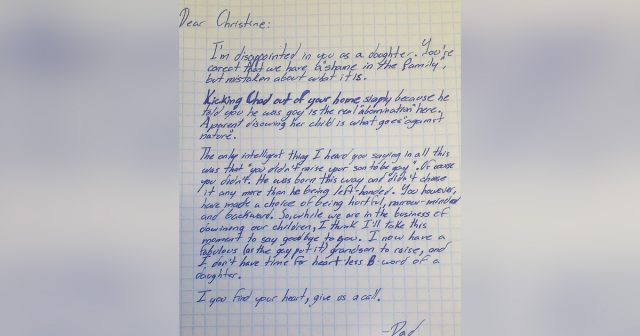 Dear Christine:
I'm disappointed in you as a daughter. You're
correct that we have a "shame in the family",
but mistaken about what it is.
Kicking Chad out of your home simply because he
told you he was gay is the real "abomination" here.
A parent disowning her child is what goes "against
nature".
The only intelligent thing I heard you saying in all this
was that "you didn't raise your son to be gay". Of course
you didn't. He was born this way and didn't choose
it any more than he being left-handed. You however,
have made a choice of being hurtful, narrow-minded
and backward. So, while we are in the business of
disowning our children, I think I'll take this
moment to say goodbye to you. I now have a
fabulous (as the gay put it) grandson to raise, and
I don't have time for heart less B-word of a
daughter.
If you find your heart, give us a call.
-Dad